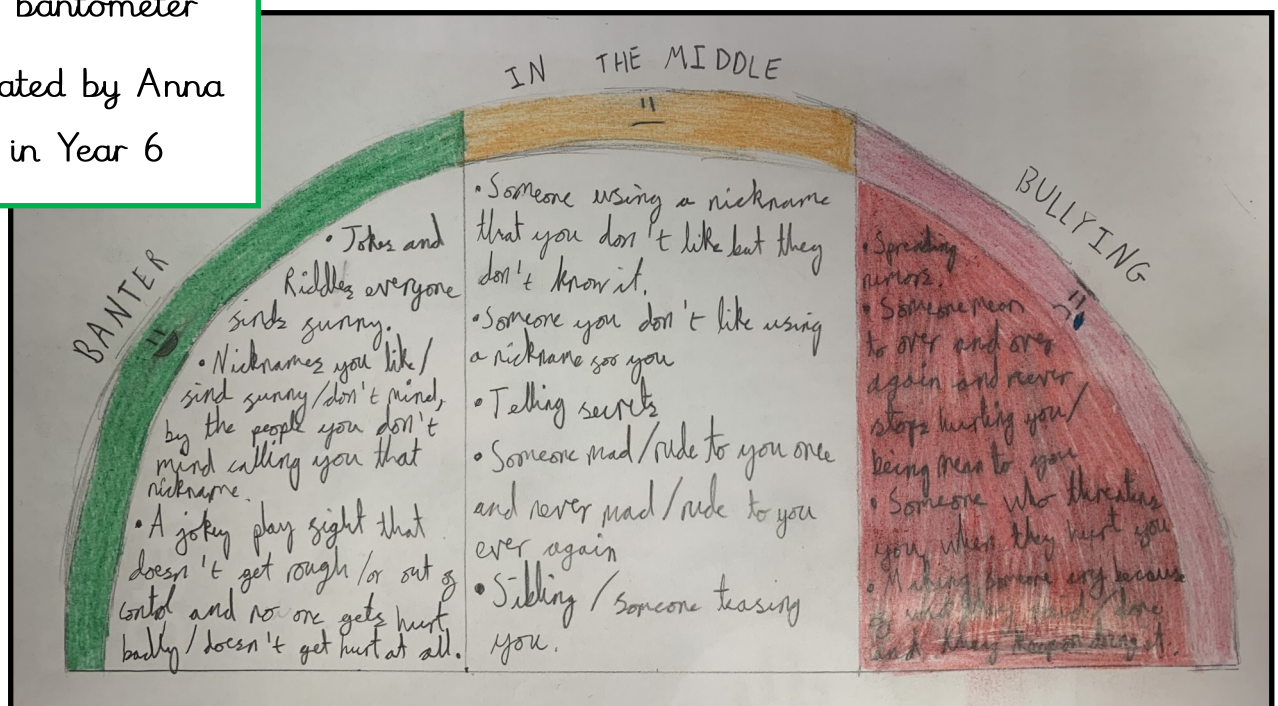 bantometer
ated by Anna
in Year 6
BANTER
• Jokes and
Riddles everyone
finds funny.
• Nicknames you like/
find funny/don't mind,
by the people you don't
mind calling you that
nickname.
• A jokey play fight that
doesn't get rough/or out of
control and no one gets hurt
badly/doesn't get hurt at all.
IN THE MIDDLE
• Someone using a nickname
that you don't like but they
don't know it.
• Someone you don't like using
a nickname for you
• Telling secrets
• Someone mad/rude to you once
and never mad/rude to you
ever again
• Sibling/someone teasing
you.
BULLYING
• Spreading
rumors.
• Someone mean
to over and over
again and never
stops hurting you/
being mean to you
• Someone who threatens
you, when they hurt you
• Making someone cry because
of what they said/done
and they keep on doing it.